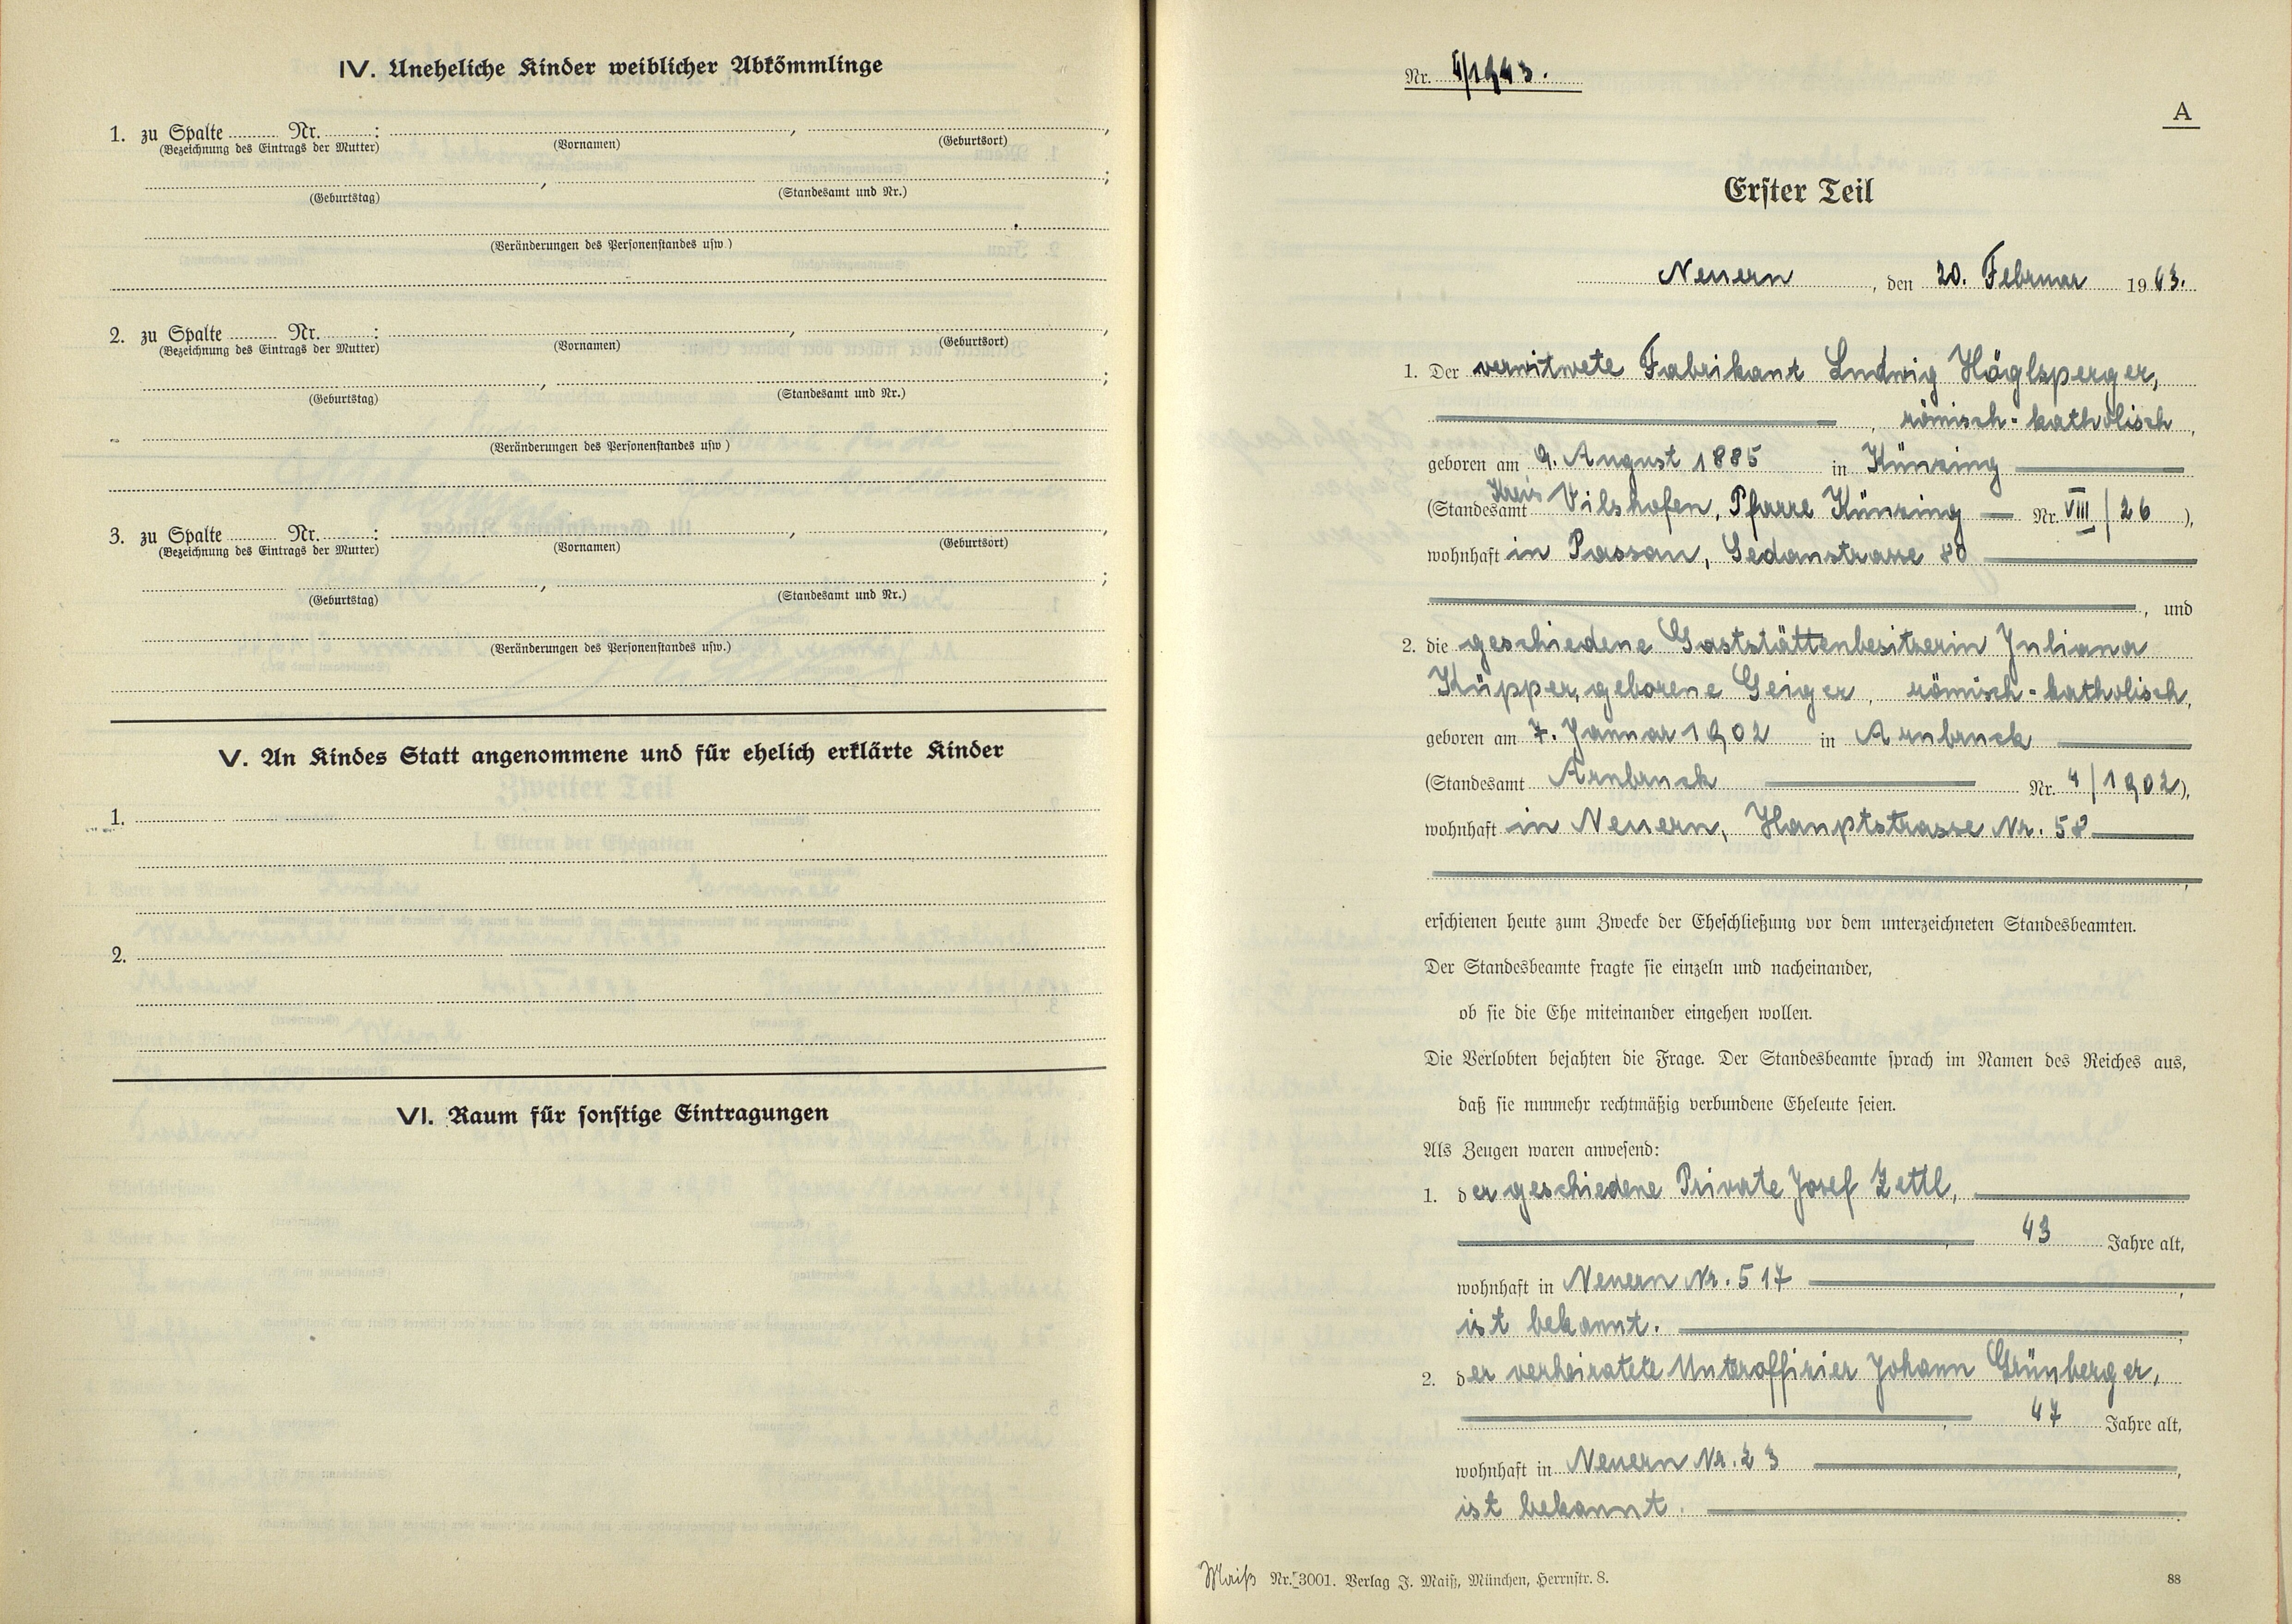 IV. Uneheliche Kinder weiblicher Abkömmlinge
1. zu Spalte ........ Nr. ........ : ........ , ........ ,
(Bezeichnung des Eintrags der Mutter) (Vornamen) (Geburtsort)
(Geburtstag) (Standesamt und Nr.)
(Veränderungen des Personenstandes usw.)
2. zu Spalte ........ Nr. ........ : ........ , ........ ,
(Bezeichnung des Eintrags der Mutter) (Vornamen) (Geburtsort)
(Geburtstag) (Standesamt und Nr.)
(Veränderungen des Personenstandes usw.)
3. zu Spalte ........ Nr. ........ : ........ , ........ ,
(Bezeichnung des Eintrags der Mutter) (Vornamen) (Geburtsort)
(Geburtstag) (Standesamt und Nr.)
(Veränderungen des Personenstandes usw.)
V. An Kindes Statt angenommene und für ehelich erklärte Kinder
1.
2.
VI. Raum für sonstige Eintragungen
Nr. 4/1943.
A
Erster Teil
Neuern, den 20. Februar 1943.
1. Der verwitwete Fabrikant Ludwig Höglsperger,
römisch-katholisch,
geboren am 9. August 1885 in Künzing
(Standesamt Kreis Vilshofen, Pfarre Künzing Nr. VIII/26),
wohnhaft in Passau, Sedanstrasse 80
, und
2. die geschiedene Gaststättenbesitzerin Juliana
Küpper, geborene Geiger, römisch-katholisch,
geboren am 7. Januar 1902 in Arnbruck
(Standesamt Arnbruck Nr. 4/1902),
wohnhaft in Neuern, Hauptstrasse Nr. 58
erschienen heute zum Zwecke der Eheschließung vor dem unterzeichneten Standesbeamten.
Der Standesbeamte fragte sie einzeln und nacheinander,
ob sie die Ehe miteinander eingehen wollen.
Die Verlobten bejahten die Frage. Der Standesbeamte sprach im Namen des Reiches aus,
daß sie nunmehr rechtmäßig verbundene Eheleute seien.
Als Zeugen waren anwesend:
1. der geschiedene Private Josef Zettl,
43 Jahre alt,
wohnhaft in Neuern Nr. 517
ist bekannt.
2. der verheiratete Unteroffizier Johann Grünberger,
47 Jahre alt,
wohnhaft in Neuern Nr. 23
ist bekannt.
Maiß Nr. 3001. Verlag J. Maiß, München, Herrnstr. 8.
88